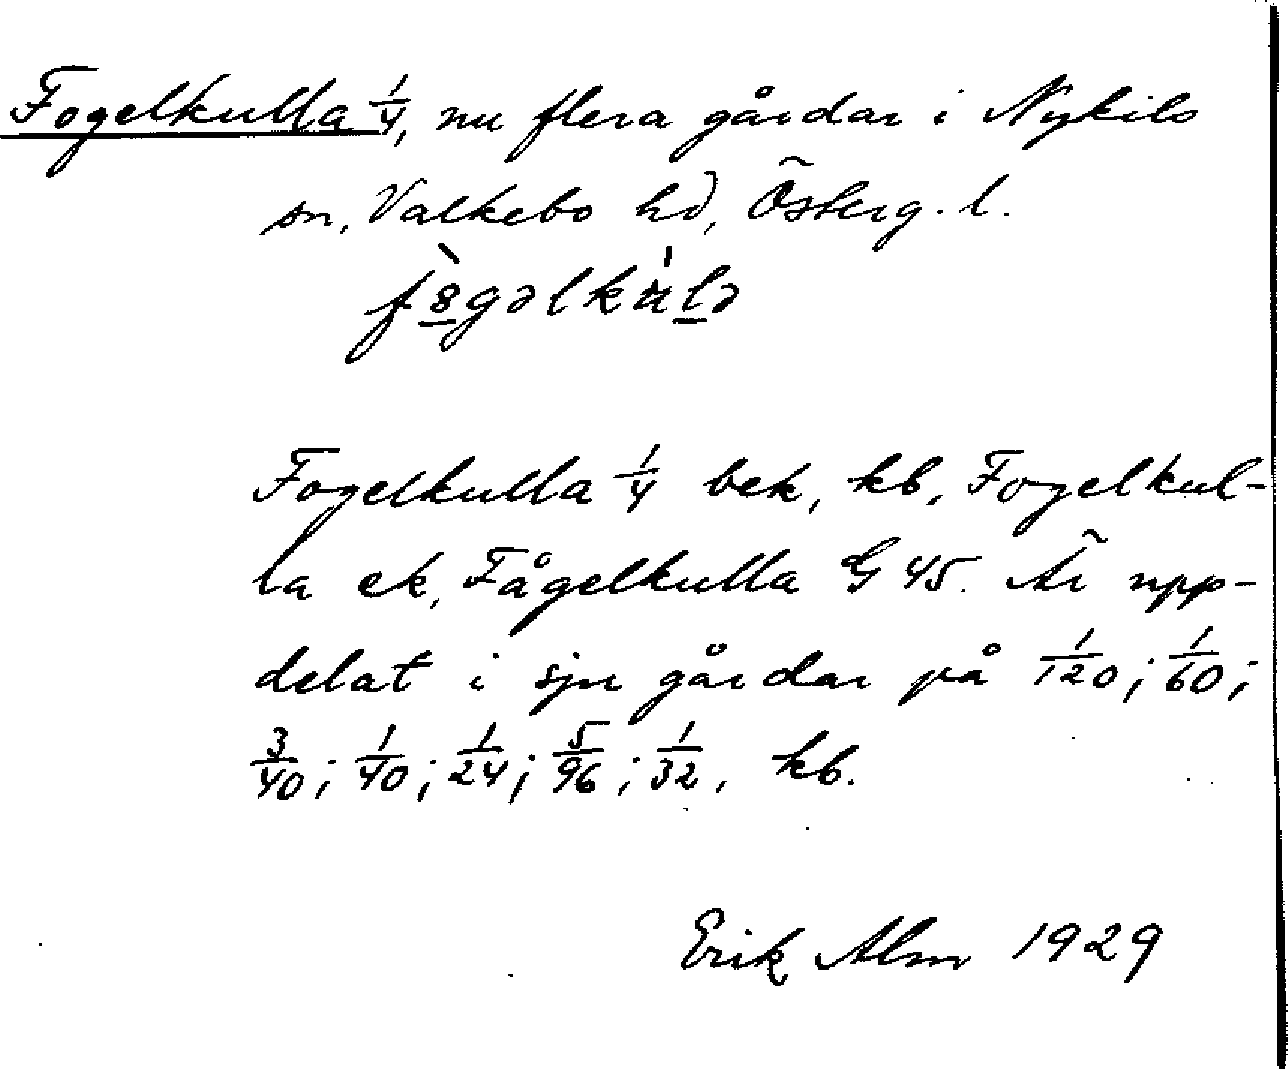 Fogelkulla 1/4, nu flera gårdar i Nykils
sn, Valkebo hd, Österg. l.
Fogelkulla 1/4 bek, kb, Fogelkul-
la ek, Fågelkulla G 45. Är upp-
delat i sju gårdar på 1/120; 1/60;
3/40; 1/40; 1/24; 5/96; 1/32, kb.
Erik Alm 1929